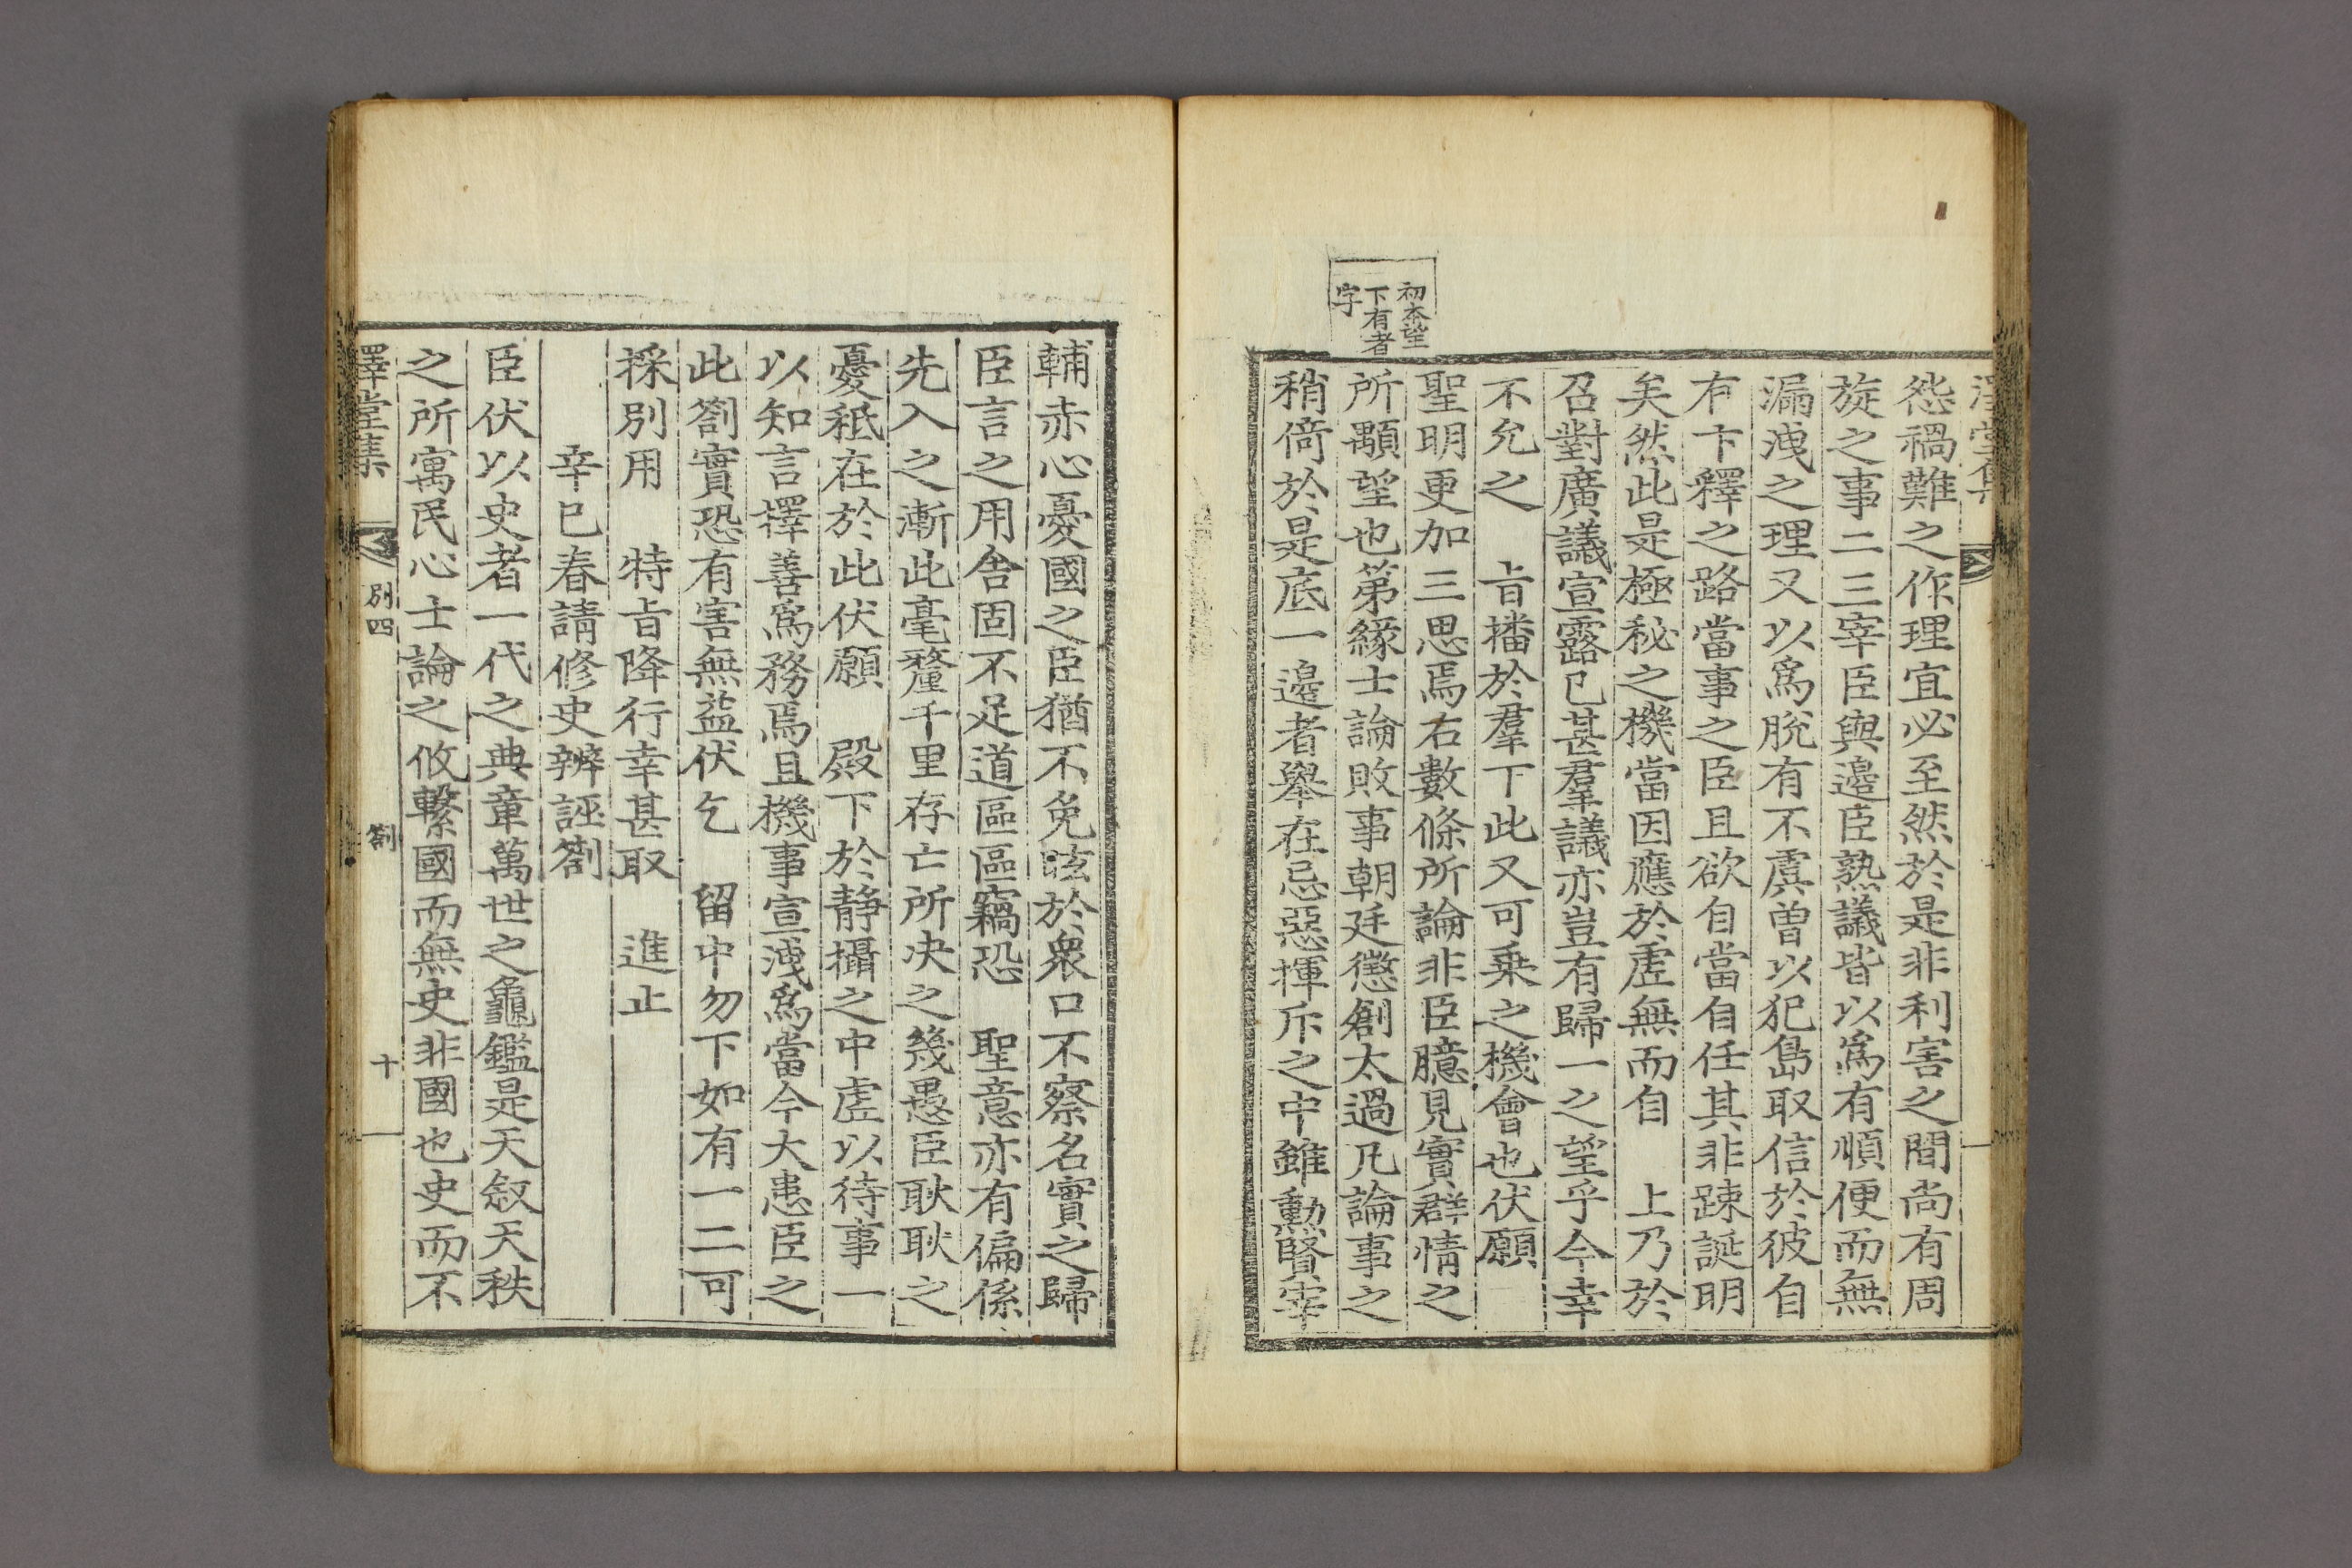 澤堂集
怨禍難之作理宜必至然於是非利害之間尚有周
旋之事二三宰臣與邉臣熟議皆以爲有順便而無
漏洩之理又以爲脫有不虞曾以犯島取信於彼自
有卞釋之路當事之臣且欲自當自任其非踈誕明
矣然此是極秘之機當因應於虛無而自　上乃於
召對廣議宣露已甚羣議亦豈有歸一之望乎今幸
不允之　㫖播於羣下此又可乗之機會也伏願
聖明更加三思焉右數條所論非臣臆見實群情之
所顒望也第緣士論敗事朝廷懲創太過凡論事之
稍倚於是底一邉者舉在忌惡揮斥之中雖勳賢宰
初本望
下有者
字
輔赤心憂國之臣猶不免眩於衆口不察名實之歸
臣言之用舍固不足道區區竊恐　聖意亦有偏係
先入之漸此毫釐千里存亡所决之幾愚臣耿耿之
憂秪在於此伏願　殿下於静攝之中虛以待事一
以知言擇善爲務焉且機事宣洩爲當今大患臣之
此劄實恐有害無益伏乞　留中勿下如有一二可
採別用　特㫖降行幸甚取　進止
辛巳春請修史辨誣劄
臣伏以史者一代之典章萬世之龜鑑是天敍天秩
之所寓民心士論之攸繫國而無史非國也史而不
澤堂集　別四　劄　十